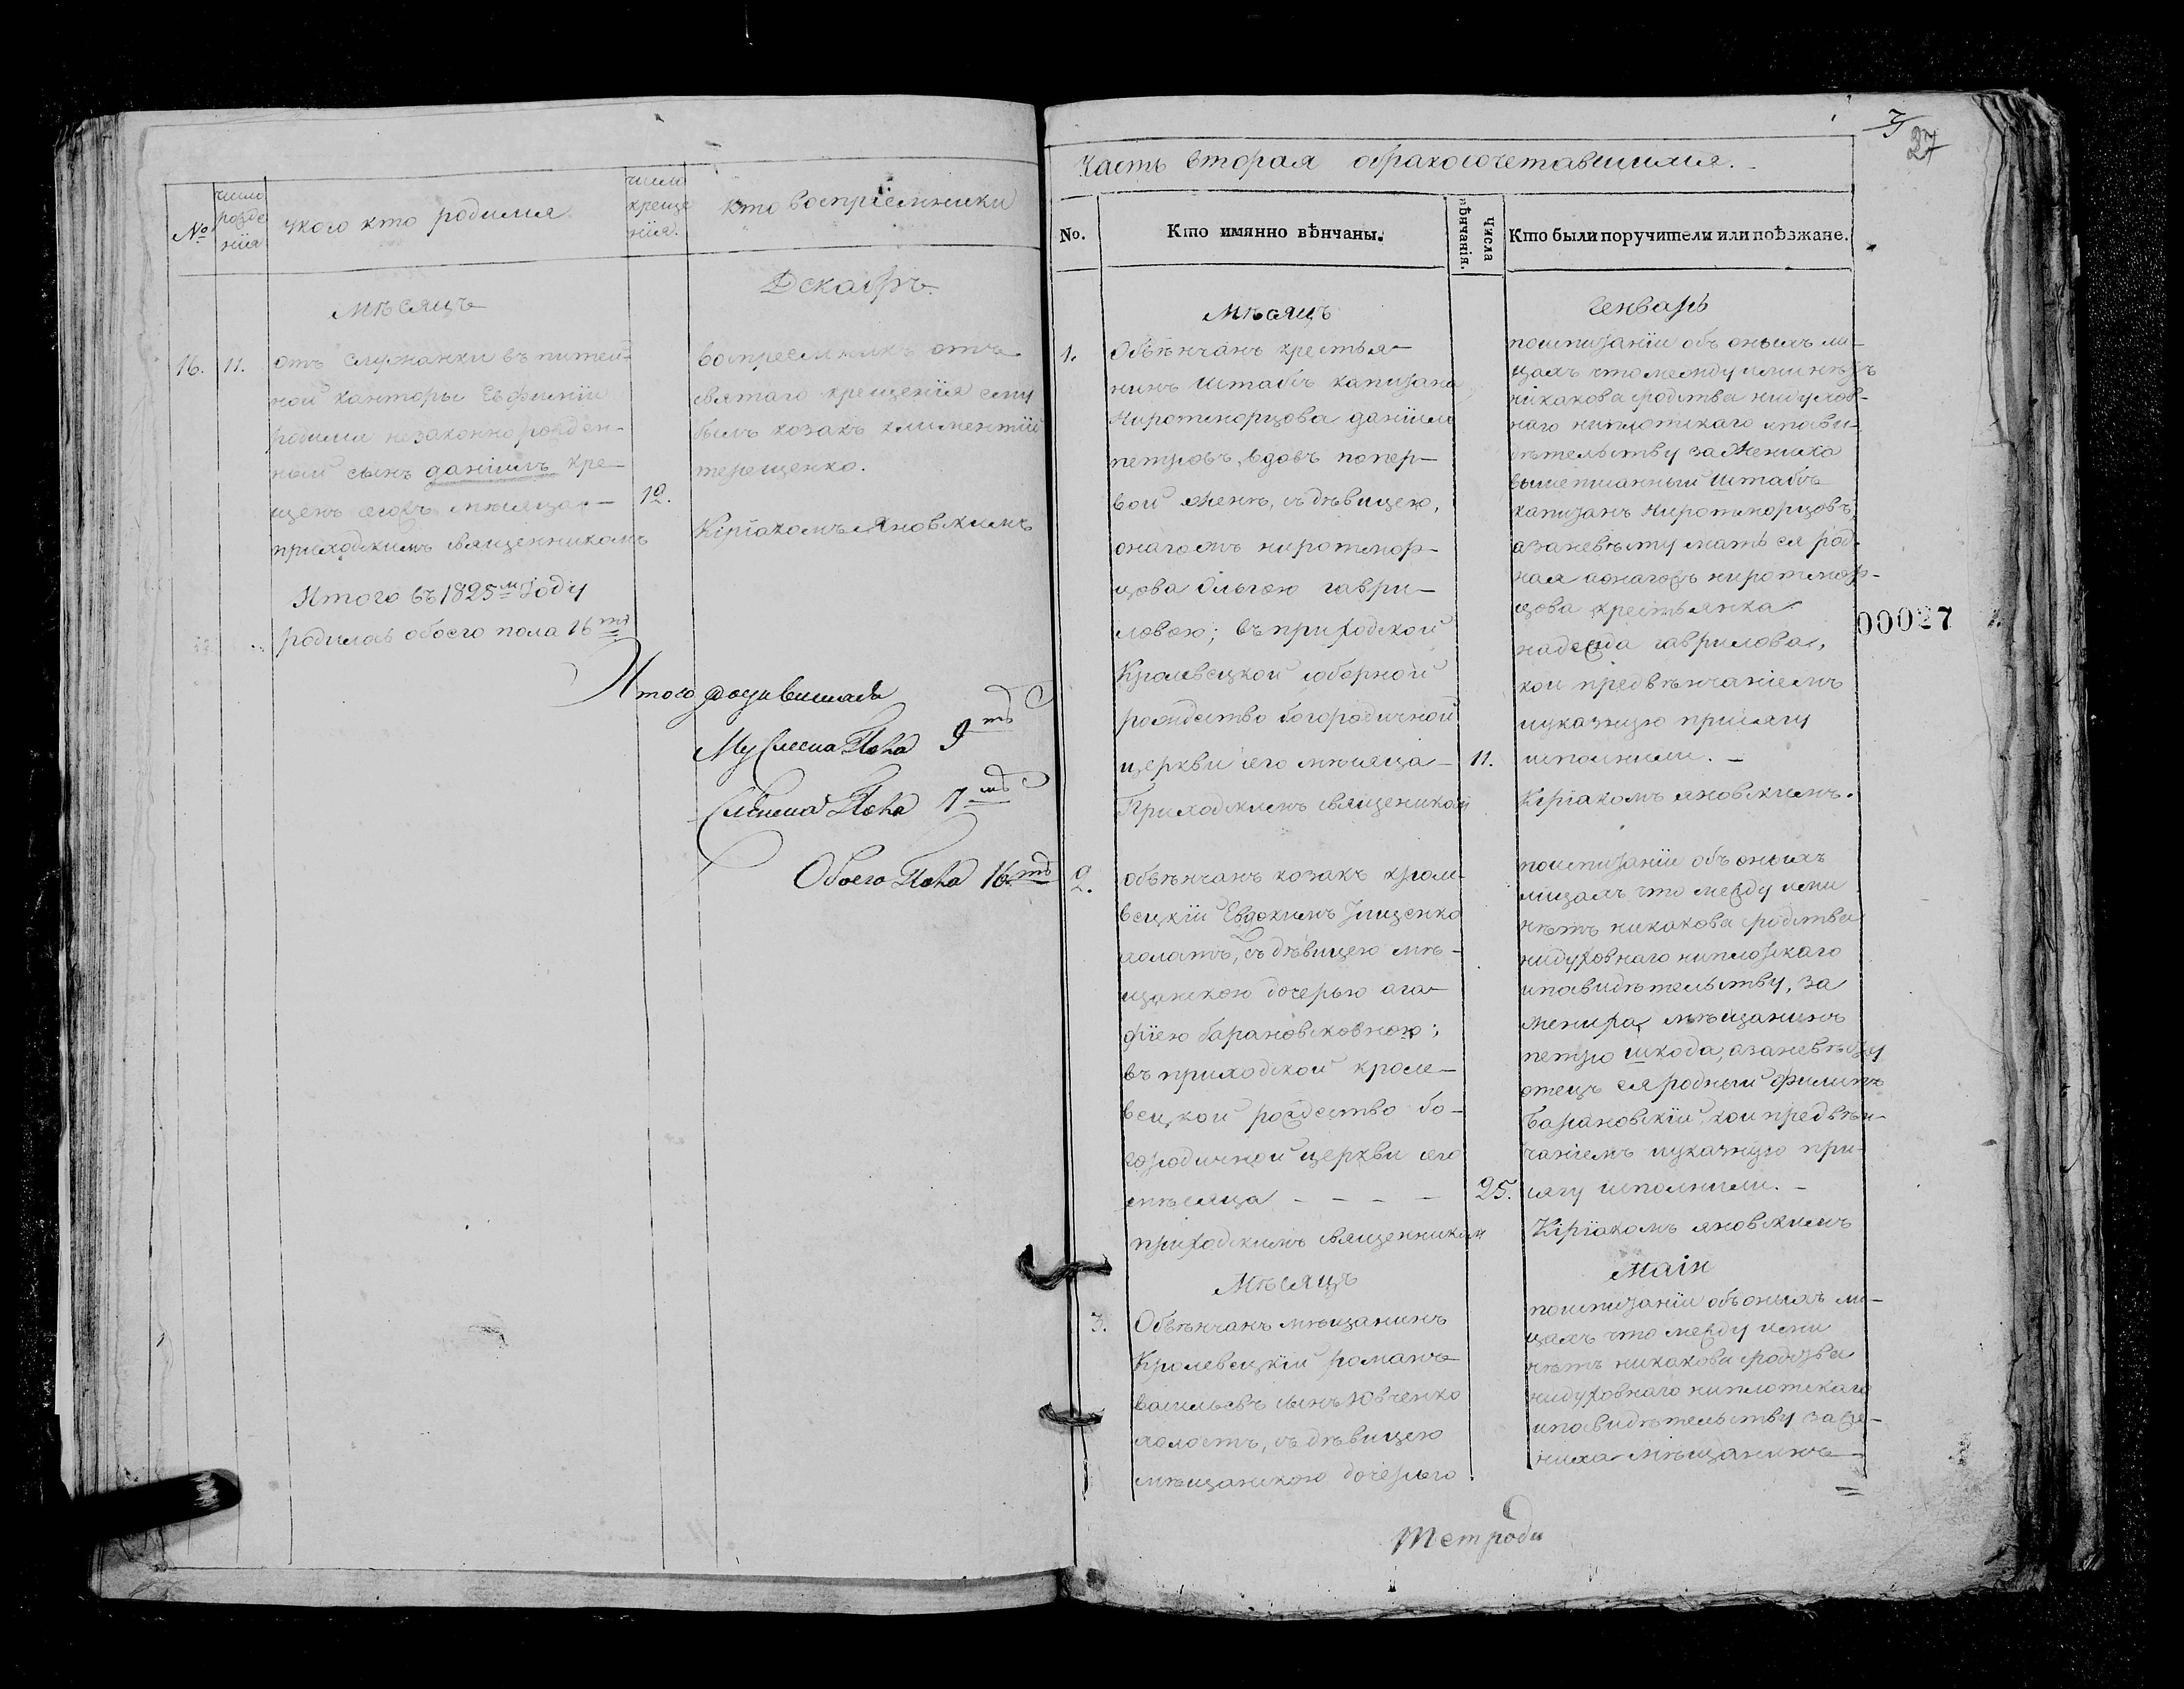 №
число рожде нія
у кого кто родился
число креще нія.
кто воспріемники
мѣсяцъ
Декабрь.
16. 11.
отъ служанки въ питей-
ной канторы Евфиміи
родился незаконно рожден-
ный сынъ даніилъ кре-
щенъ сегожъ мѣсяца 12.
приходскимъ священникомъ
Итого въ 1825м году
родилось обоего пола 16ть
воспреемникъ отъ
святаго крещенія ему
былъ козакъ климентій
терещенко.
Кіріакомъ Яновскимъ
Итого родившихся
Мужеска Пола 9ть
Женска Пола 7мь
Обоего Пола 16ть
27
Часть вторая обракосочетавшихся.
No.
Кто имянно вѣнчаны.
Числа вѣнчанія.
Кто были поручители или поѣзжане.
мѣсяцъ
генварь
1.
Обвѣнчанъ крестья-
нинъ Штабъ капитана
Ниротморцова даніилъ
петровъ, вдовъ попер-
вой женѣ, съ дѣвицею,
онагожъ ниротмор-
цова ольгою гаври-
ловою; въ приходской
Кролевецкой соборной
рождество богородичной
церкви сего мѣсяца 11.
Приходскимъ священикомъ
поисписаніи объ оныхъ ли-
цахъ что между ими нѣтъ
никакова родства ни духов-
наго ни плотскаго по сви-
дѣтельству за Жениха
вышеписанный Штабъ
капитанъ Ниротморцовъ,
а заневѣсту мать ея род-
ная аонагожъ ниротмор-
цова крестьянка
надежда гаврилова,
кои предъ вѣнчаніемъ
иуказную присягу
исполнили.
Кіріакомъ яновскимъ.
2.
обвѣнчанъ козакъ кроле-
вецкій Евдокимъ Ищенко
холостъ, съ дѣвицею мѣ-
щанскою дочерью ага-
фіею барановсковною;
въ приходской кроле-
вецкой рождество бо-
городичной церкви сего
мѣсяца - - - - 25.
приходскимъ священникомъ
поисписаніи объ оныхъ
лицахъ что между ими
нѣтъ никакова родства
нидуховнаго ниплотскаго
ипосвидѣтельству, за
жениха мѣщанинъ
петро шкода, а заневѣсту
отецъ ея родный Филипъ
Барановскій, кои предъ вѣн-
чаніемъ иуказную при-
сягу исполнили.
Кіріакомъ яновскимъ
Мѣсяцъ
Маія
3.
Обвѣнчанъ мѣщанинъ
Кролевецкій романъ
васильевъ сынъ Ювченко
холостъ, съ дѣвицею
мѣщанскою дочерью
поисписаніи объ оныхъ ли-
цахъ что между ими
нѣтъ никакова родства
нидуховнаго ниплотскаго
ипосвидѣтельству за же-
ниха мѣщанинъ
00027